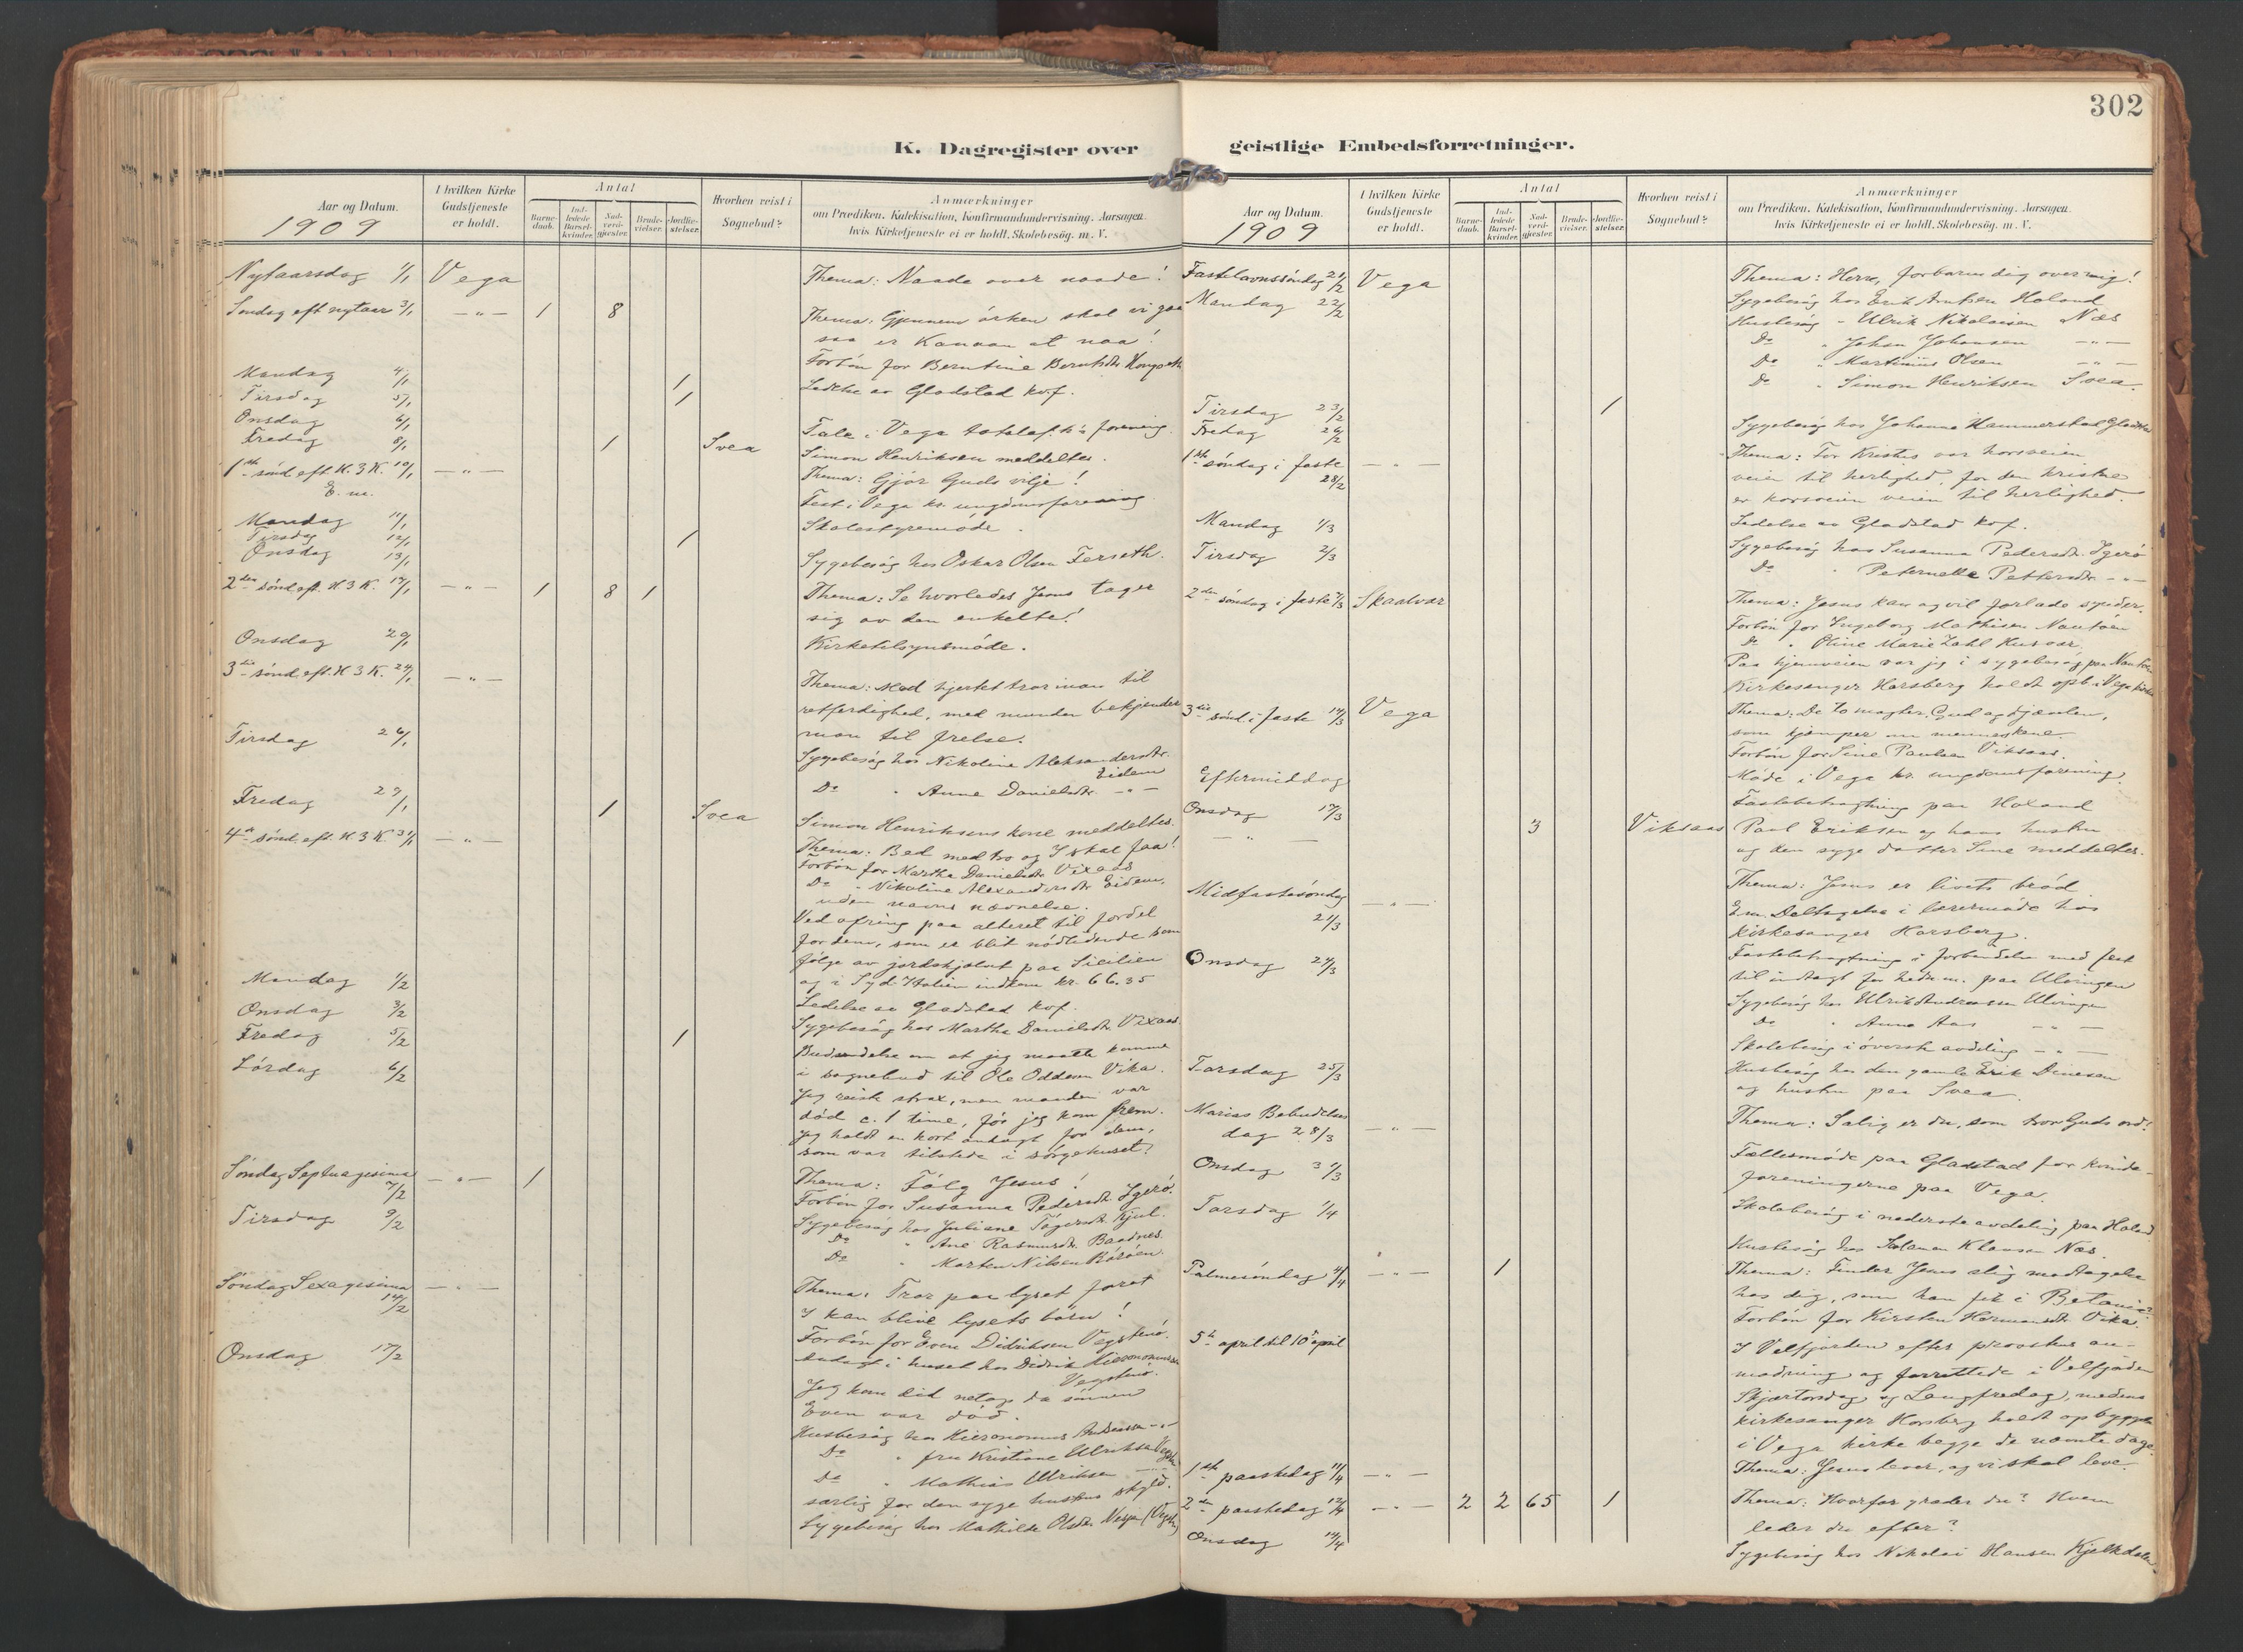 302
K. Dagregister over geistlige Embedsforretninger.
Aar og Datum.
1909
I hvilken Kirke Gudstjeneste er holdt.
Antal
Barne-daab.
Ind-ledede Barsel-kvinder.
Nad-verd-gjester.
Brude-vielser.
Jordfæ-stelser.
Hvorhen reist i Sognebud?
Anmærkninger
om Prædiken. Katekisation, Konfirmandundervisning. Aarsagen.
hvis Kirketjeneste ei er holdt. Skolebesøg. m. V.
Nytaarsdag 1/1 Vega Thema: Naade over naade!
Søndag eft nytaar 3/1 — " — 1 8 Thema: Gjennem ørken skal vi gaa
saa er Kanaan at naa!
Forbøn for Berntine Berntsdtr.
Mandag 4/1 1 Ledelse av Gladstad kvf.
Tirsdag 5/1 1
Onsdag 6/1 Tale i Vega totalaf.h's forening.
Fredag 8/1 1 Svea Simon Henriksen meddeltes.
1ste sønd. eft. H. 3 K. 10/1 — " — Thema: Gjør Guds vilje!
E. m. Fest i Vega kr. ungdomsforening
Mandag 11/1 Skolestyremøde.
Tirsdag 12/1 1
Onsdag 13/1 Sygebesøg hos Oskar Olsen Ferseth.
2den sønd eft. H 3 K. 17/1 — " — 1 8 1 Thema: Se hvorledes Jesus tager
sig av den enkelte!
Onsdag 20/1 Kirketilsynsmøde.
3die sønd. eft. H 3 K. 24/1 — " — Thema: Med hjertet tror man til
retferdighed, med munden bekjender
man til frelse.
Tirsdag 26/1 Sygebesøg hos Nikoline Aleksandersdtr.
Eidem
Do " Anne Danielsdtr. — " —
Fredag 29/1 1 Svea Simon Henriksens kone meddeltes.
4de sønd. eft. H 3 K. 31/1 — " — Thema: Bed med tro og I skal faa!
Forbøn for Martha Danielsdtr. Vixaas
Do " Nikoline Alexandersdtr. Eidem.
uden navns nævnelse.
Ved ofring paa alteret til fordel
for dem, som er blit nødlidende som
følge av jordskjælvet paa Sicilien
og i Syd-Italien indkom kr. 66.35
Mandag 1/2 Ledelse av Gladstad kvf.
Onsdag 3/2 Sygebesøg hos Martha Danielsdtr. Vixaas.
Fredag 5/2 1
Lørdag 6/2 Budsendelse om at jeg maatte komme
i sognebud til Ole Oddem Vika.
Jeg reiste strax, men manden var
død c. 1 time, før jeg kom frem.
Jeg holdt en kort andagt for dem,
som var tilstede i sørgehuset.
Søndag Septuagesima 7/2 — " — 1 Thema: Følg Jesus!
Forbøn for Susanna Pedersdtr. Igerø.
Tirsdag 9/2 Sygebesøg hos Juliane Tøgersdtr. Kjul.
Do " Ane Rasmusdtr. Baadnes.
Do " Morten Nilsen Rørøen.
Søndag Sexagesima 14/2 — " — Thema: Tror paa lyset foret
I kan blive lysets børn!
Forbøn for Even Didriksen Vegsteinø.
Onsdag 17/2 Andagt i huset hos Didrik Hieronomussen
Vegsteinø.
Jeg kom did netop da sønnen
Even var død.
Husbesøg hos Hieronomus Andersen — " —
Do " fru Kristiane Ulriksen
Do " Mathias Ulriksen — " —
særlig for den syge hustrus skyld.
Sygebesøg hos Mathilde Olsdtr. Nesje
Aar og Datum.
1909
I hvilken Kirke Gudstjeneste er holdt.
Antal
Barne-daab.
Ind-ledede Barsel-kvinder.
Nad-verd-gjester.
Brude-vielser.
Jordfæ-stelser.
Hvorhen reist i Sognebud?
Anmærkninger
om Prædiken. Katekisation, Konfirmandundervisning. Aarsagen.
hvis Kirketjeneste ei er holdt. Skolebesøg. m. V.
Fastelavnssøndag 21/2 Vega Thema: Herre, forbarm dig over mig!
Mandag 22/2 Sygebesøg hos Erik Arntsen Holand
Husbesøg - Ulrik Nikolaisen Næs
Do " Johan Johansen — " —
Do " Martinus Olsen — " —
Do " Simon Henriksen Svea.
Tirsdag 23/2 1
Fredag 26/2 Sygebesøg hos Johanna Hammerstad Gladstad
1ste søndag i faste 28/2 — " — Thema: For Kristus var korsveien
veien til herlighed, for den kristne
er korsveien veien til herlighed.
Mandag 1/3 Ledelse av Gladstad kvf.
Tirsdag 2/3 Sygebesøg hos Susanna Pedersdtr. Igerø
Do " Peternelle Pettersdtr. — " —
2den søndag i faste 7/3 Skaalvær Thema: Jesus kan og vil forlade synder.
Forbøn for Ingeborg Mathisen Nautøen
Do " Oline Marie Zahl Husvær.
Paa hjemveien var jeg i sygebesøg paa Nautøen
Kirkesanger Horsberg holdt opb. i Vega kirke
3die sønd i faste 14/3 Vega Thema: De to magter, Gud og djævlen,
som kjæmper om menneskene.
Forbøn for Sine Paulsen Viksaas.
Eftermiddag Møde i Vega kr. ungdomsforening.
Onsdag 17/3 Fastebetragtning paa Holand
— " — 3 Viksaas Paul Eriksen og hans hustru
og den syge datter Sine meddeltes.
Midfastesøndag 21/3 — " — Thema: Jesus er livets brød
Em. Deltagelse i læsermøde hos
kirkesanger Horsberg.
Onsdag 24/3 Fastebetragtning i forbindelse med fest
til indtægt for hedn. m. paa Ulvingen
Sygebesøg hos Ulrik Andreassen Ulvingen
Do " Anna Aas — " —
Skolebesøg i øverste avdeling — " —
Torsdag 25/3 Husbesøg hos den gamle Erik Dinesen
og hustru paa Svea.
Marias Bebudelses
dag 28/3 — " — Thema: Salig er du, som tror Guds ord!
Onsdag 31/3 Fællesmøde paa Gladstad for kvinde-
foreningerne paa Vega.
Torsdag 1/4 Skolebesøg i nederste avdeling paa Holand
Husbesøg hos Salamon Klausen Næs.
Palmesøndag 4/4 — " — 1 Thema: Finder Jesus slig modtagelse
hos dig, som han fik i Betania?
Forbøn for Kirsten Hermansdtr. Vika.
5te april til 10de april I Velfjorden efter provstens an-
modning og forrettede i Velfjorden
Skjærtorsdag og Langfredag, medens
kirkesanger Horsberg holdt opbyggelse
i Vega kirke begge de nævnte dage.
1ste paaskedag 11/4 — " — Thema: Jesus lever, og vi skal leve.
2den paaskedag 12/4 — " — 2 2 65 1 Thema: Hvorfor græder du? Hvem
leder du efter?
Onsdag 14/4 Sygebesøg hos Nikolai Hansen Kjelkdalen.